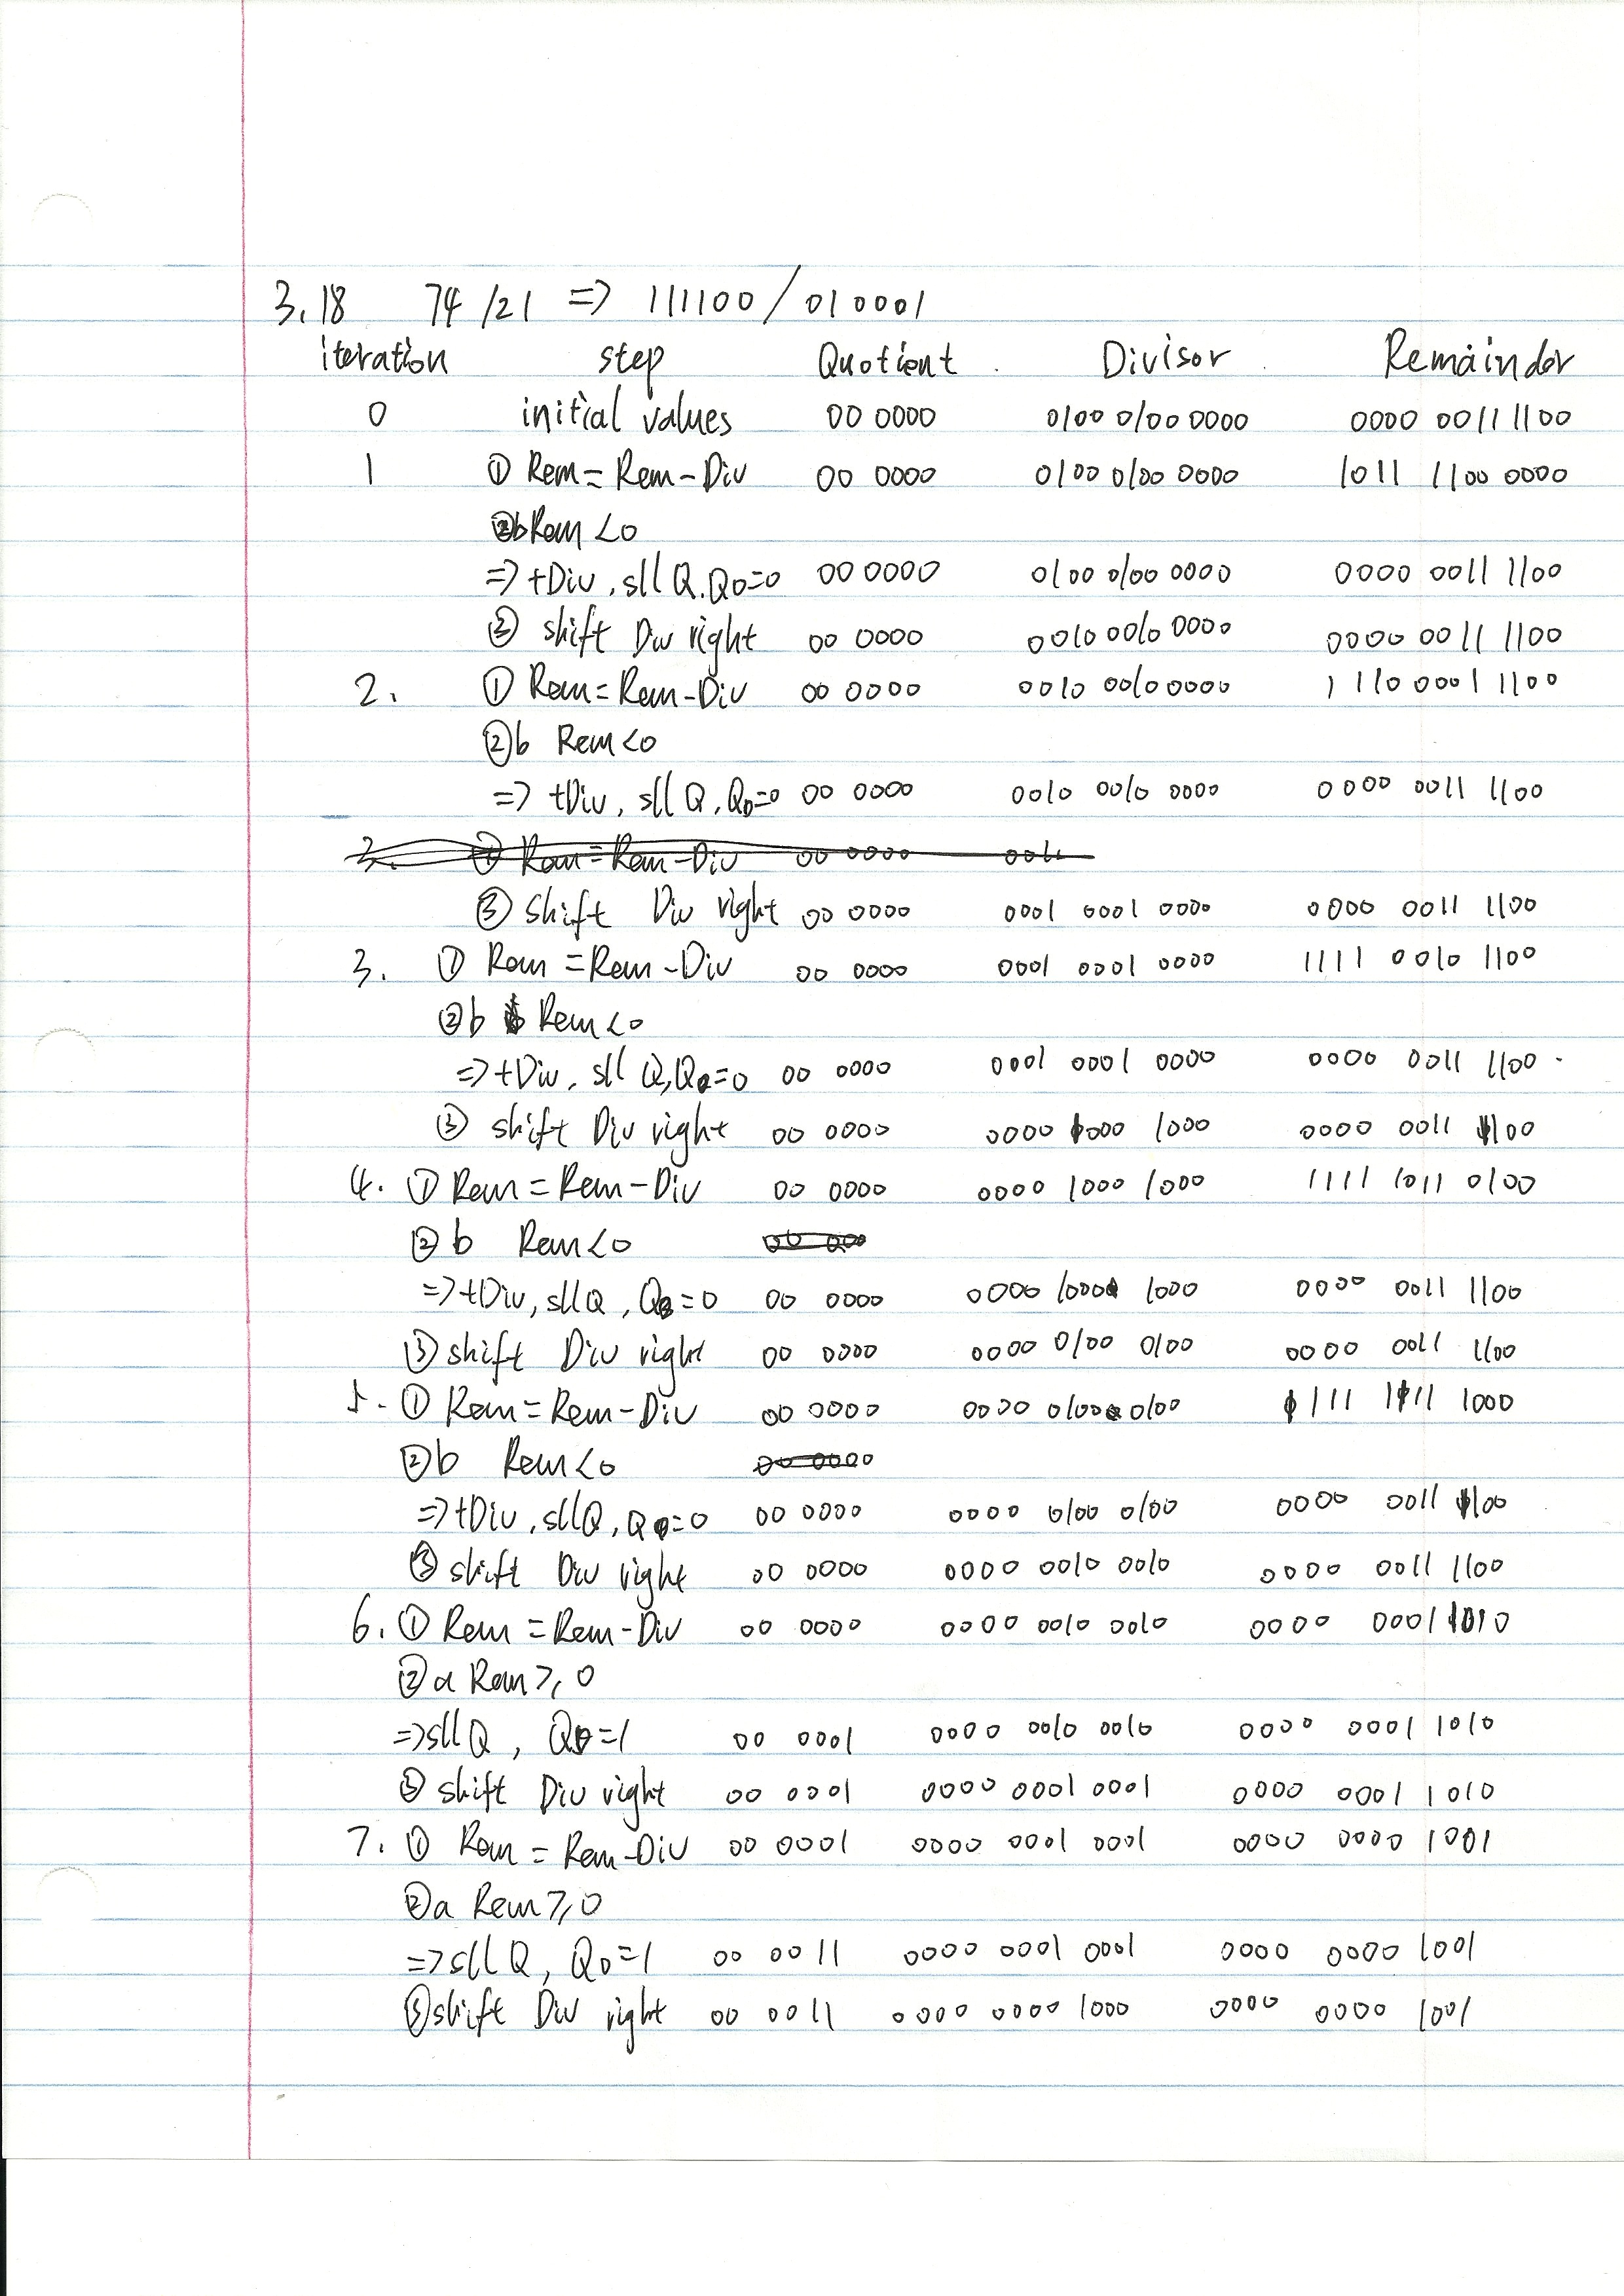 3.18 74 /21 => 111100 / 010001
iteration step Quotient Divisor Remainder
0 initial values 00 0000 0100 0100 0000 0000 0011 1100
1 ① Rem = Rem - Div 00 0000 0100 0100 0000 1011 1100 0000
②b Rem <0
=> +Div, sll Q, Q0=0 00 0000 0100 0100 0000 0000 0011 1100
③ shift Div right 00 0000 0010 0010 0000 0000 0011 1100
2. ① Rem = Rem - Div 00 0000 0010 0010 0000 1110 0001 1100
②b Rem <0
=> +Div, sll Q, Q0=0 00 0000 0010 0010 0000 0000 0011 1100
3. ① Rem = Rem - Div 00 0000 001
③ shift Div right 00 0000 0001 0001 0000 0000 0011 1100
3. ① Rem = Rem - Div 00 0000 0001 0001 0000 1111 0010 1100
②b Rem <0
=> +Div, sll Q, Q0=0 00 0000 0001 0001 0000 0000 0011 1100
③ shift Div right 00 0000 0000 1000 1000 0000 0011 1100
4. ① Rem = Rem - Div 00 0000 0000 1000 1000 1111 1011 0100
②b Rem <0
=> +Div, sll Q, Q0=0 00 0000 0000 1000 1000 0000 0011 1100
③ shift Div right 00 0000 0000 0100 0100 0000 0011 1100
5. ① Rem = Rem - Div 00 0000 0000 0100 0100 1111 1111 1000
②b Rem <0 00 0000
=> +Div, sll Q, Q0=0 00 0000 0000 0100 0100 0000 0011 1100
③ shift Div right 00 0000 0000 0010 0010 0000 0011 1100
6. ① Rem = Rem - Div 00 0000 0000 0010 0010 0000 0001 1010
②a Rem ≥ 0
=> sll Q, Q0=1 00 0001 0000 0010 0010 0000 0001 1010
③ shift Div right 00 0001 0000 0001 0001 0000 0001 1010
7. ① Rem = Rem - Div 00 0001 0000 0001 0001 0000 0000 1001
②a Rem ≥ 0
=> sll Q, Q0=1 00 0011 0000 0001 0001 0000 0000 1001
③ shift Div right 00 0011 0000 0000 1000 0000 0000 1001